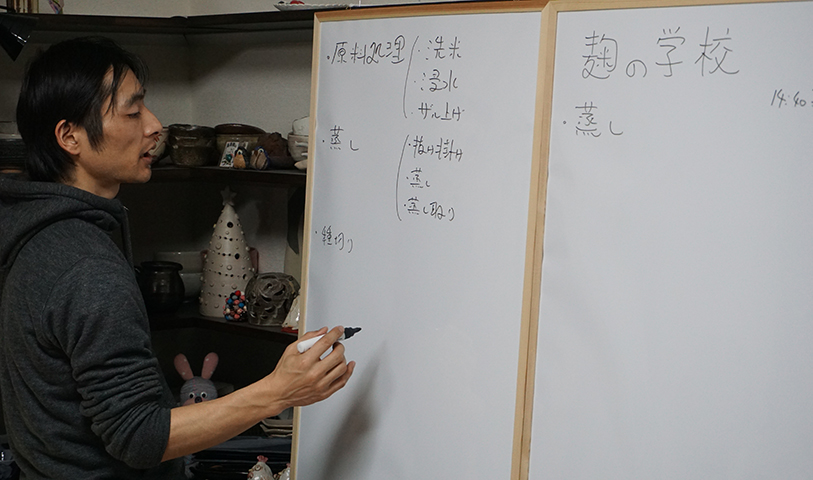 ・原料処理
・洗米
・浸水
・ザル上げ
・蒸し
・抜け掛け
・蒸し
・蒸し取り
・種切り
麹の学校
14:40
・蒸し